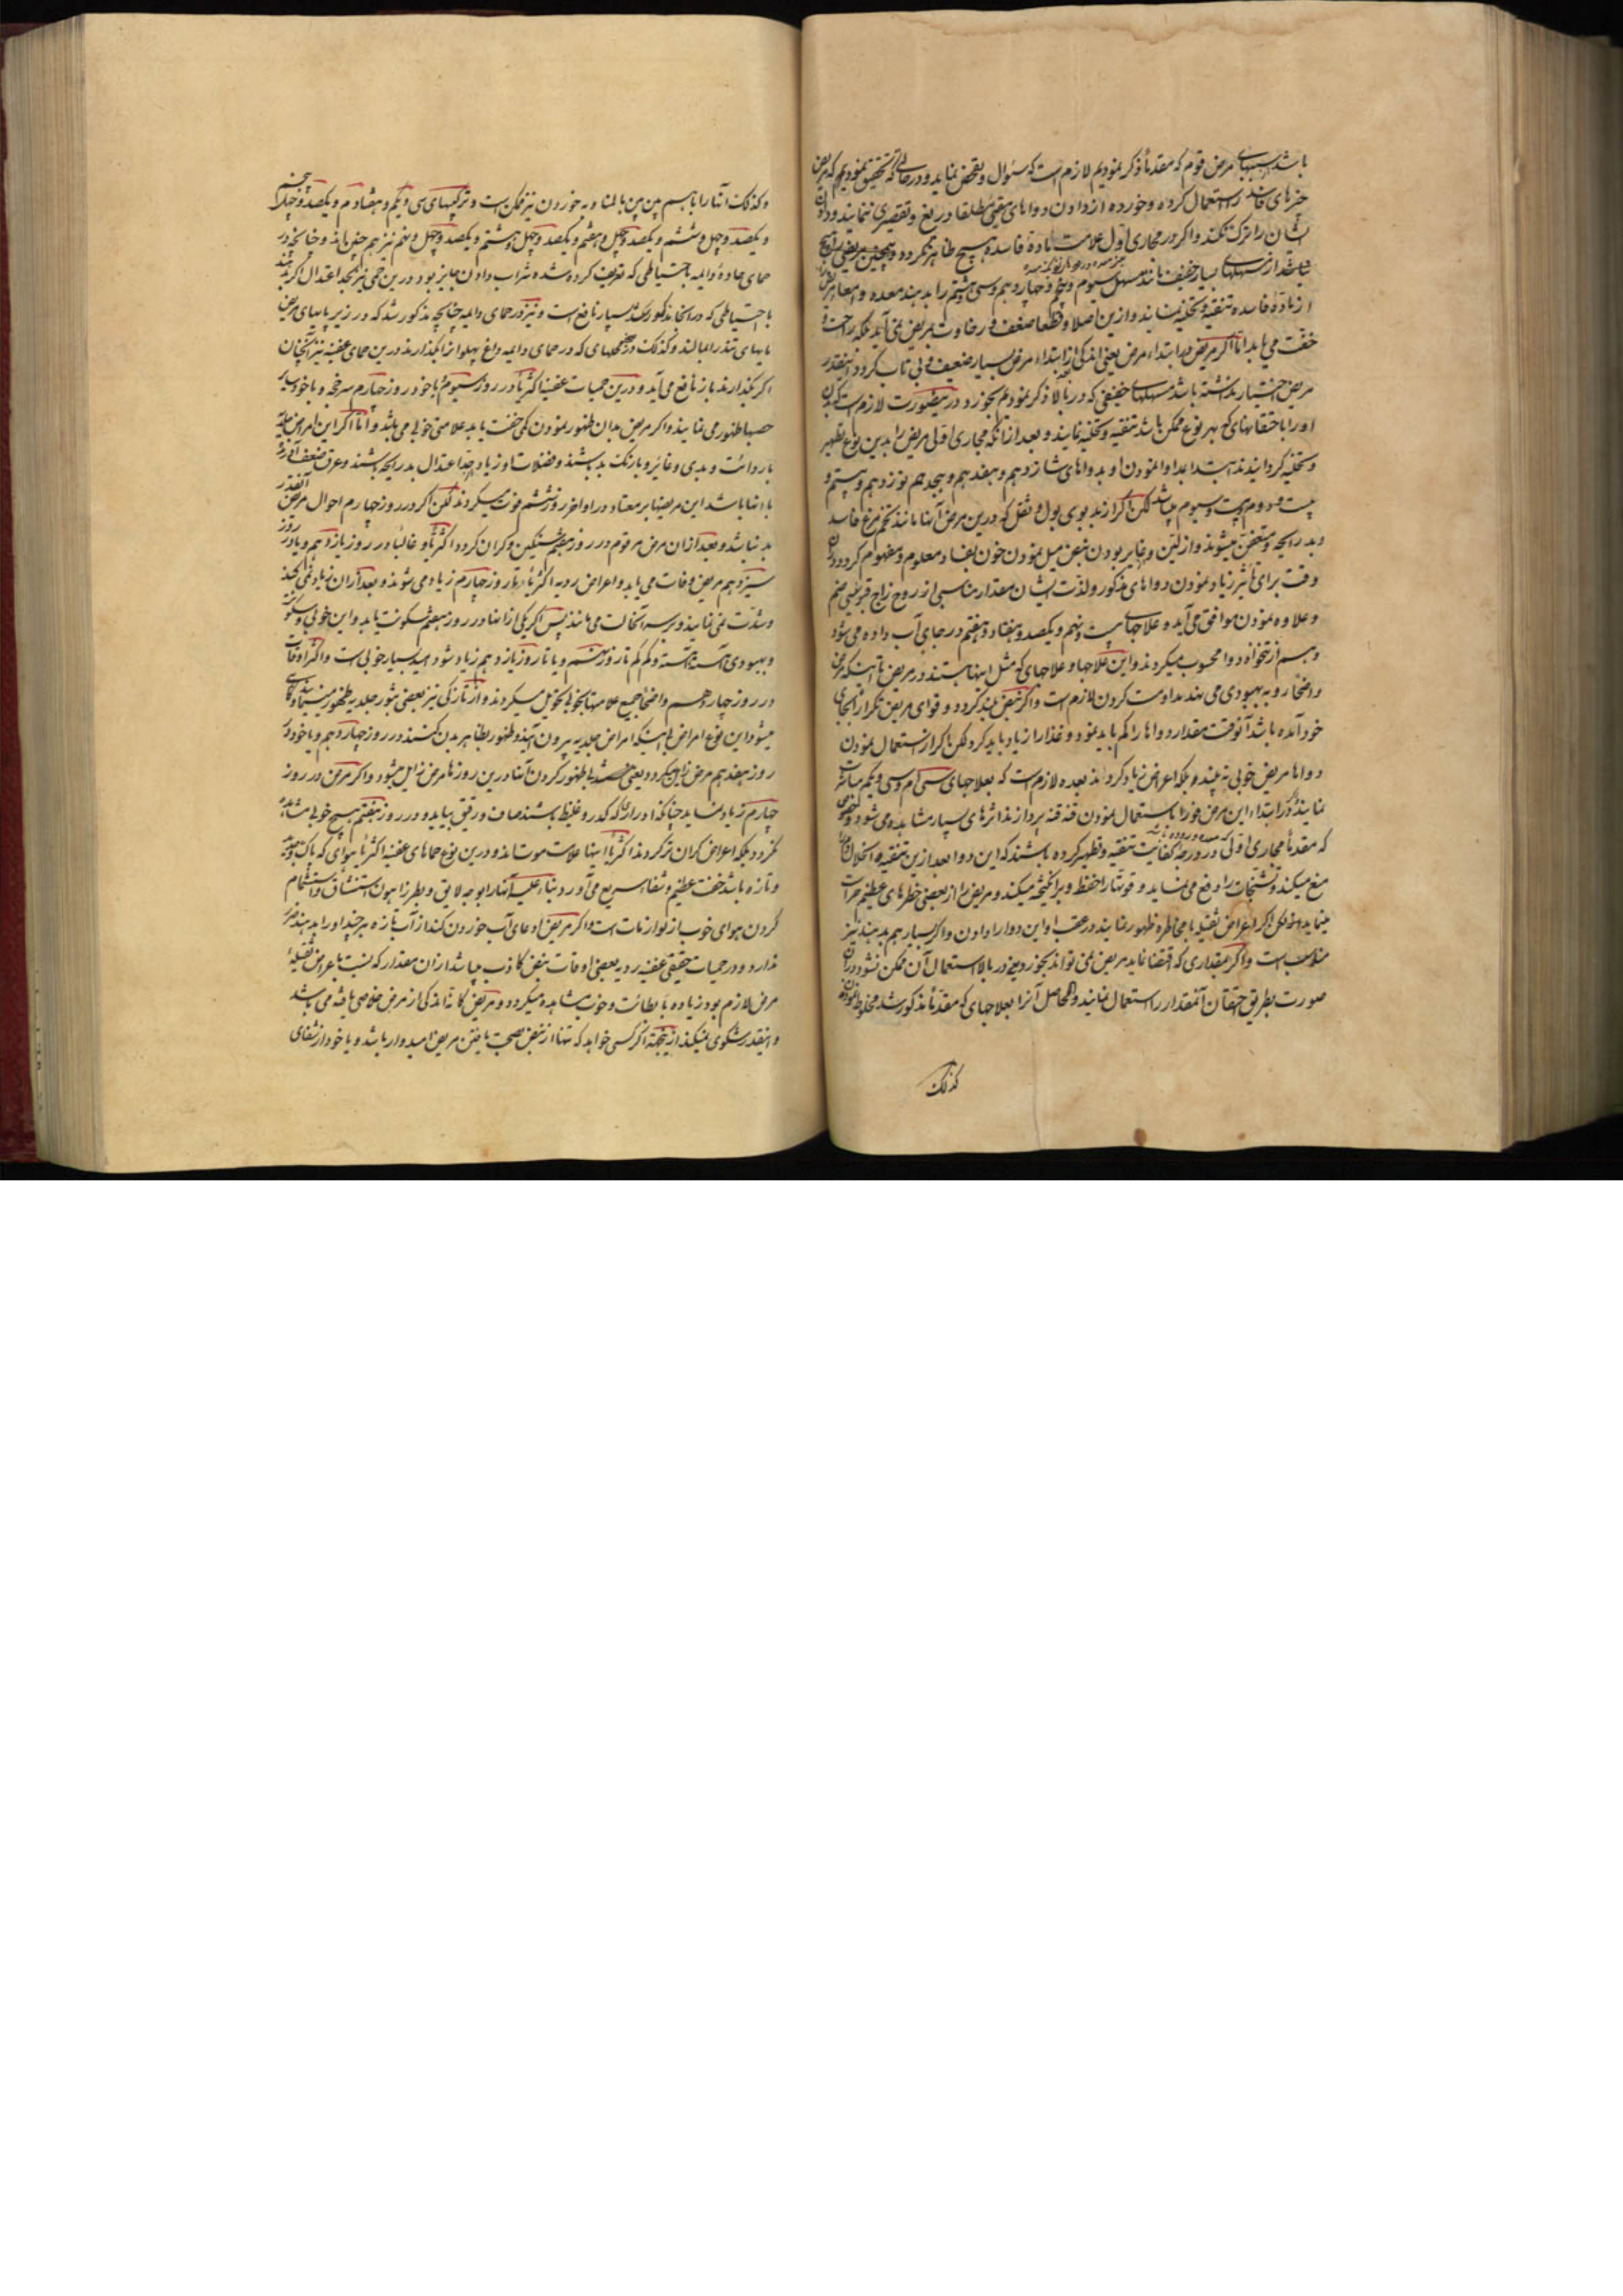 باشد سببهای مرض مرقوم که مقدماً ذکر نمودیم لازم است که سئوال و تفحص نماید و در حالی که تحقیق نمودیم که مریض
چیزهای فاسد را استعمال کرده و خورده از دادن دواهای مقیئ مطلقا دریغ و تقصیری ننمایند و دادن
ایشان را ترک نکنند و اگر در مجاری اول علامت مادهٔ فاسده هیچ ظاهر نگردد و همچنین مریض را هیچ
نباشد از مسهلهای بسیار خفیف مانند مسهل سیوم و پنجم و چهاردهم و سی و هشتم را بدهند معده و امعاء مریض
از مادهٔ فاسده تنقیه و تخلیه نمایند و ازین اصلا و قطعا ضعف و رخاوت بمریض نمی آید بلکه راحت و
خفت می یابد اما اگر مریض در ابتداء مرض یعنی اندکی از ابتداء مرض بسیار ضعیف و بی تاب گردد آنقدر
مریض اختیار نداشته باشد مسهلهای خفیفی که در بالا ذکر نمودیم بخورد درینصورت لازم است که بدن
او را با حقنهای که بهر نوع ممکن باشد تنقیه و تخلیه نمایند و بعد از آنکه مجاری اولی مریض را بدین نوع تطهیر
و تخلیه گردانیدند ابتدا بمداوا نمودن او بدواهای شانزدهم و هفدهم و هیجدهم نوزدهم و بیستم و
بیست و دوم و بیست و سیوم میباشد لکن اگر از بد بوی بول و ثفل که درین مرض آنها مانند تخم مرغ فاسد
و بد رایحه و متعفن میشوند و از لین و غایر بودن نبض میل نمودن خون بفساد معلوم و مفهوم گردد در آن
وقت برای تأثیر زیاد نمودن دواهای مذکور و لذت ایشان مقدار مناسبی از روح زاج قبرسی ضم
و علاوه نمودن موافق می آید و علاجهای بیست و نهم و یکصد و هفتاد و هفتم در جای آب داده می شود
و بسم ارتخواه دوا محسوب میگردند و این علاجها و علاجهای که مثل اینها هستند در مریض تا اینکه مرض
و انحطاط رو به بهبودی می نهد مداومت کردن لازم است و اگر نبض بلند گردد و قوای مریض تکرار بجای
خود آمده باشد آنوقت مقدار دواها را کم باید نمود و غذا را زیاد باید کرد لکن اگر از استعمال نمودن
دواها مریض خوبی نه بیند و بلکه اعراض زیاد گردند بعده لازم است که بعلاجهای سی ام و سی و یکم مباشرت
نمایند و در ابتداء این مرض فورا باستعمال نمودن قنه قنه پردازند اثرهای بسیار مشاهده می شود و خصوص
که مقدماً مجاری اولی در درجهٔ کفایت تنقیه و تطهیر کرده باشند که این دوا بعد ازین تنقیه انحلال خون
منع میکند و تشنجات را دفع می نماید و قوتها را حفظ و برانگیخته میکند و مریض را از بعضی خطرهای عظیم حراست
مینماید لکن اگر اعراض ثقیله با مخاطره ظهور نمایند در عقب او این دوا را دادن و اگر بسیار هم بدهند نیز
مناسب است و اگر مقداری که اقتضا نماید مریض نمی تواند بخورد یعنی در بالا استعمال آن ممکن نشود در آن
صورت بطریق حقنه آن آنمقدار را استعمال نمایند والحاصل آنرا بعلاجهای که مقدماً مذکور شد مخلوط نموده
کذلک
و کذلک آنها را با جسم من بن بالمنا و به خوردن نیز ممکن است و ترکیبهای سی و یکم و هفتاد م و یکصد و چهل و پنجم
و یکصد و چهل و ششم و یکصد و چهل و هفتم و یکصد و چهل و هشتم و یکصد و چهل و نهم نیز هم چنین باند و چنانچه در
حمای حادهٔ دایمه باحتیاطی که تعریف کرده شده شراب دادن جایز بود درین حمی نیز بحد اعتدال اگر بدهند
باحتیاطی که در انجا مذکور شد بسیار نافع است و نیز در حمای دایمه چنانچه مذکور شد که در زیر پایهای مریض
ماهیهای تند را بمالند و کذلک در محلهای که در حمای دایمه داغ پهلو از آ بگذارند درین حمای عفنیه نیز آنچنان
اگر بگذارند باز نافع می آید و درین حمیات عفنیه اکثریا در روز سیوم و یا خود روز چهارم سرخجه و یا خود سیاه
حصبها ظهور می نمایند و اگر مریض بدان ظهور نمودن کمی خفت یابد علامتی خوبی می باشد و اما اگر این امراض جلدیه
با ردائت و بدی و غایر و با رنگ بد باشند و فضلات او زیاد حد اعتدال بد رایحه باشند و عرق ضعف آورنده
با اینها باشد این مریضها بر معتاد در اواخر روز ششم فوت میگردند لکن اگر در روز چهارم احوال مریض آنقدر
بد نباشد و بعد از آن مرض مرقوم در روز هفتم سنگین و گران گردد اکثریا و غالباً در روز یازدهم و یا در روز
سیزدهم مریض وفات می یابد و اعراض ردیه اکثریا تا روز چهارم زیاد می شوند و بعد از آن زیاد نمی کنند
و شدت نمی نمایند و بر سر آنحالت می مانند پس اگر یکی از اینها در روز هفتم سکونت یابد و این خوبی و سکونت
و بهبودی آهسته آهسته و کم کم تا روز نهم و یا تا روز یازدهم زیاد شود امید بسیار خوبی است و اکثر اوقات
در روز چهاردهم واضحاً جمیع علامتها بخوبی تحویل میگردند و از تازگی نیز بعضی بثور جلدیه ظهور مینمایند و گاهی
میشود این نوع امراض با اینکه امراض جلدیه بیرون آیند و ظهور بظاهر بدن کنند در روز چهاردهم و یا خود در
روز هفدهم مرض زایل میگردد یعنی حصبه ها ظهور کردن آنها درین روزها مرض زایل میشود و اگر مرض در روز
چهارم زیاد نماید چنانکه ادرار که کدر و غلیظ باشند صاف و رقیق بیاید و در روز هفتم هیچ خوبی مشاهده
نگردد بلکه اعراض گران تر گردند اکثریا اینها علامت موت اند و درین نوع حماهای عفنیه اکثریا هوای که پاک و جدید
و تازه باشد خفت عظیم و شفا سریع می آورد بناء علیه آنها را بوجه لایق و بطرز آسان استنشاق و استشمام
کردن هوای خوب از لوازمات است و اگر مریض ادعای آب خوردن کند از آب تازه هر چند او را بدهند ضرر
ندارد و در حمیات حقیقی عفنیه ردیه بعضی اوقات نبض کاذب میباشد از آن مقدار که نسبت باعراض ثقیلهٔ
مرض لازم بود زیاده با بطائت و خوب مشاهده میگردد و مریض کانه اندکی از مرض خلاصی یافته می باشد
و آنقدر شکوی نمیکند ازینجهة اگر کسی خواهد که تنها از نبض صحت یافتن مریض امیدوار باشد و یا خود از شفای